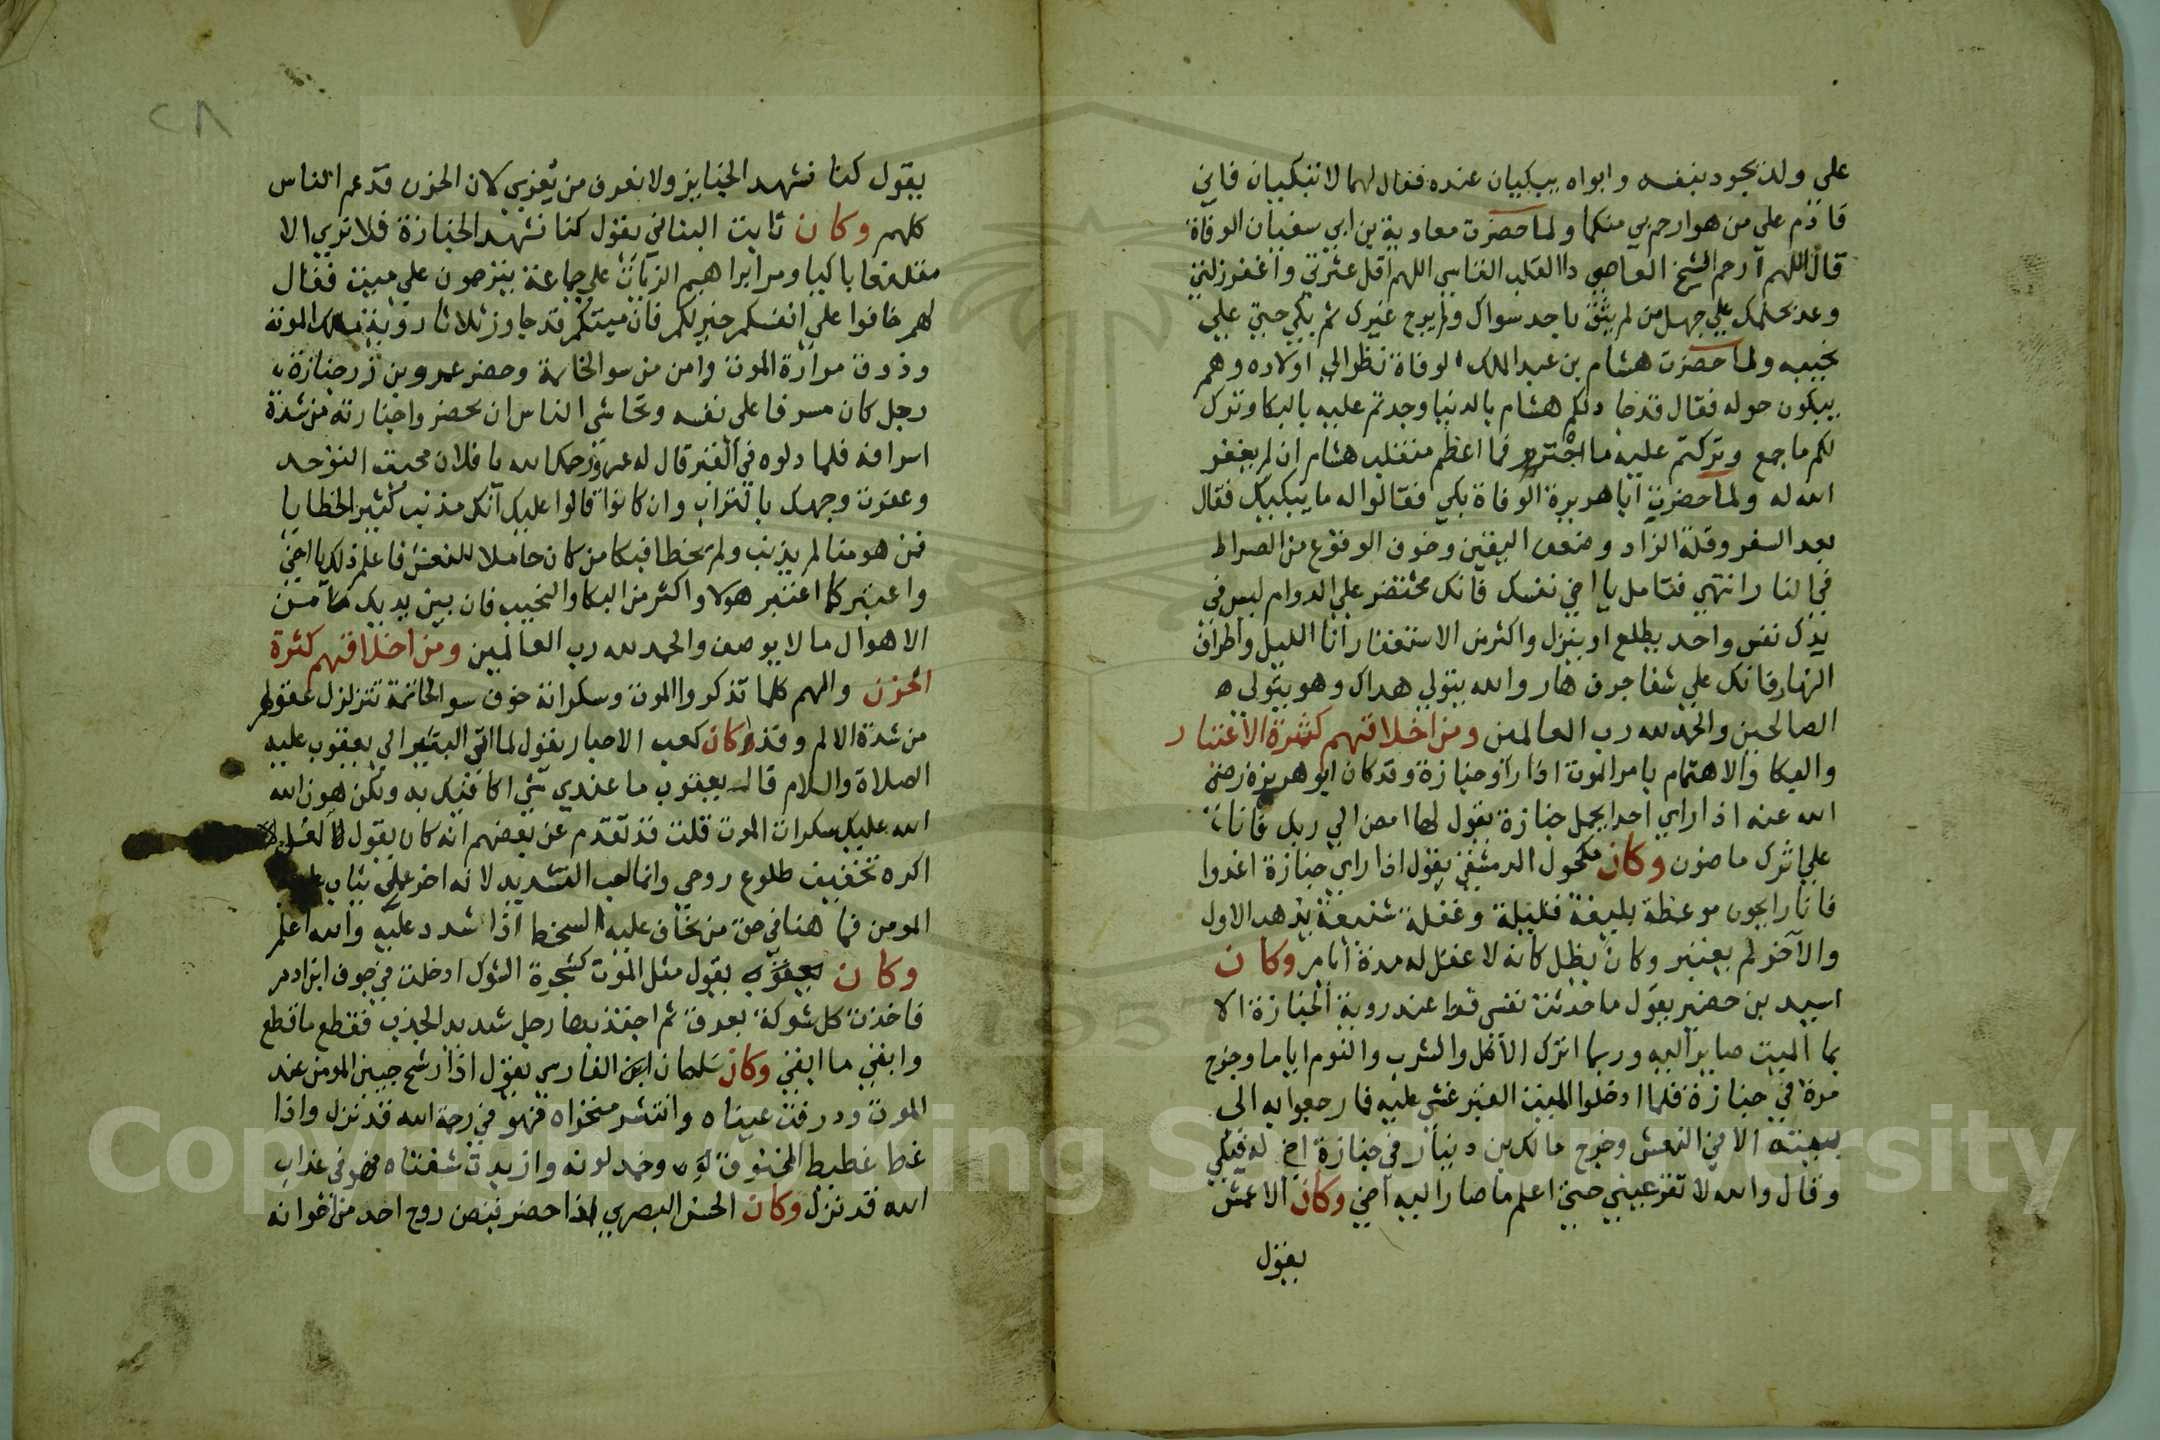 على ولد يجود بنفسه وابواه يبكيان عنده فقال لهما لا تبكيان فاني
قادم علي من هو ارحم بي منكما ولما حضرت معاوية بن ابي سفيان الوفاة
قال اللهم ارحم الشيخ العاصي ذا القلب القاسي اللهم اقل عثرتي واغفر زلتي
وعد بحلمك علي جهل من لم يثق باحد سواك ولم يرج غيرك ثم بكي حتي علي
نحيبه ولما حضرت هشام بن عبد الملك الوفاة نظر الي اولاده وهم
يبكون حوله فقال قد جاد لكم هشام بالدنيا وجدتم عليه بالبكا وترك
لكم ما جمع وتركتم عليه ما اجترم فما اعظم منقلب هشام ان لم يغفر
الله له ولما حضرت ابا هريرة الوفاة بكي فقالوا له ما يبكيك فقال
بعد السفر وقلة الزاد وضعف اليقين وخوف الوقوع من الصراط
في النار انتهي فتامل يا اخي نفسك فانك محتضر علي الدوام ليس في
يدك نفس واحد يطلع او ينزل واكثر من الاستغفار انا الليل واطراف
النهار فانك علي شفا جرف هار والله يتولي هداك وهو يتولى
الصالحين والحمد لله رب العالمين ومن اخلاقهم كثرة الاعتبار
والبكا والاهتمام بامر الموت اذا راو جنازة وقد كان ابو هريرة رضي
الله عنه اذا راي احدا يحمل جنازة يقول لها امض الي ربك فانا
علي اثرك ماضون وكان مكحول الدمشقي يقول اذا راي جنازة اغدوا
فانا رايحون موعظة بليغة قليلة وغفلة شنيعة يذهب الاول
والآخر لم يعتبر وكان يظل كانه لا عقل له مدة ايام وكان
اسيد بن حضير يقول ما حدثت نفسي قط عند روية الجنازة الا
بما الميت صاير اليه وربما اترك الاكل والشرب والنوم اياما وخرج
مرة في جنازة فلما ادخلوا الميت القبر غشي عليه فما رجعوا به الى
بيته الا في النعش وخرج مالك بن دينار في جنازة اخ له فبكي
وقال والله لا تقر عيني حتي اعلم ما صار اليه اخي وكان الاعمش
يقول
٢٨
يقول كنا نشهد الجنايز ولا نعرف من يعزي لان الحزن قد عم الناس
كلهم وكان ثابت البناني يقول كنا نشهد الجنازة فلا نري الا
متلفعا باكيا ومر ابراهيم الزيات علي جماعة يترحمون علي ميت فقال
لهم خافوا علي انفسكم خير لكم فان ميتكم قد جاوز ثلاثا روية ملك الموت
وذوق مرارة الموت وامن من سو الخاتمة وحضر عمرو بن ذر جنازة
رجل كان مسرفا على نفسه وتحاشى الناس ان يحضروا جنازته من شدة
اسرافه فلما دلوه في القبر قال له عمرو رحمك الله يا فلان صحبت التوحيد
وعفرت وجهك بالتراب وان كانوا قالوا عليك انك مذنب كثير الخطايا
فمن هو منا لم يذنب ولم يخطا فبكا من كان حاملا للنعش فاعلم ذلك يا اخي
واعتبر كما اعتبر هولا واكثر من البكا والنحيب فان بين يديك من
الاهوال ما لا يوصف والحمد لله رب العالمين ومن اخلاقهم كثرة
الحزن والهم كلما تذكروا الموت وسكراته خوف سو الخاتمة تتزلزل عقولهم
من شدة الالم وقد كان كعب الاحبار يقول لما اتي البشير الي يعقوب عليه
الصلاة والسلام قال يعقوب ما عندي شي اكافيك به ولكن هون الله
الله عليك سكرات الموت قلت قد تقدم عن بعضهم انه كان يقول
اكره تخفيف طلوع روحي وانما احب التشديد لانه اخر عمل يثاب عليه
المومن فما هنا في حق من يخاف عليه السخط اذا شدد عليه والله اعلم
وكان يعقوب يقول مثل الموت كشجرة الشوك ادخلت في جوف ابن ادم
فاخذت كل شوكة بعرق ثم اجتذبها رجل شديد الجذب فقطع ما قطع
وابقي ما ابقي وكان سلمان الفارسي يقول اذا رشح جبين المومن عند
الموت وذرفت عيناه وانتشر منخراه فهو في رحمة الله قد نزل واذا
غط غطيط المخنوق وخمد لونه وازبدت شفتاه فهو في عذاب
الله قد نزل وكان الحسن البصري اذا حضر قبض روح احد من اخوانه
Copyright © King Saud University